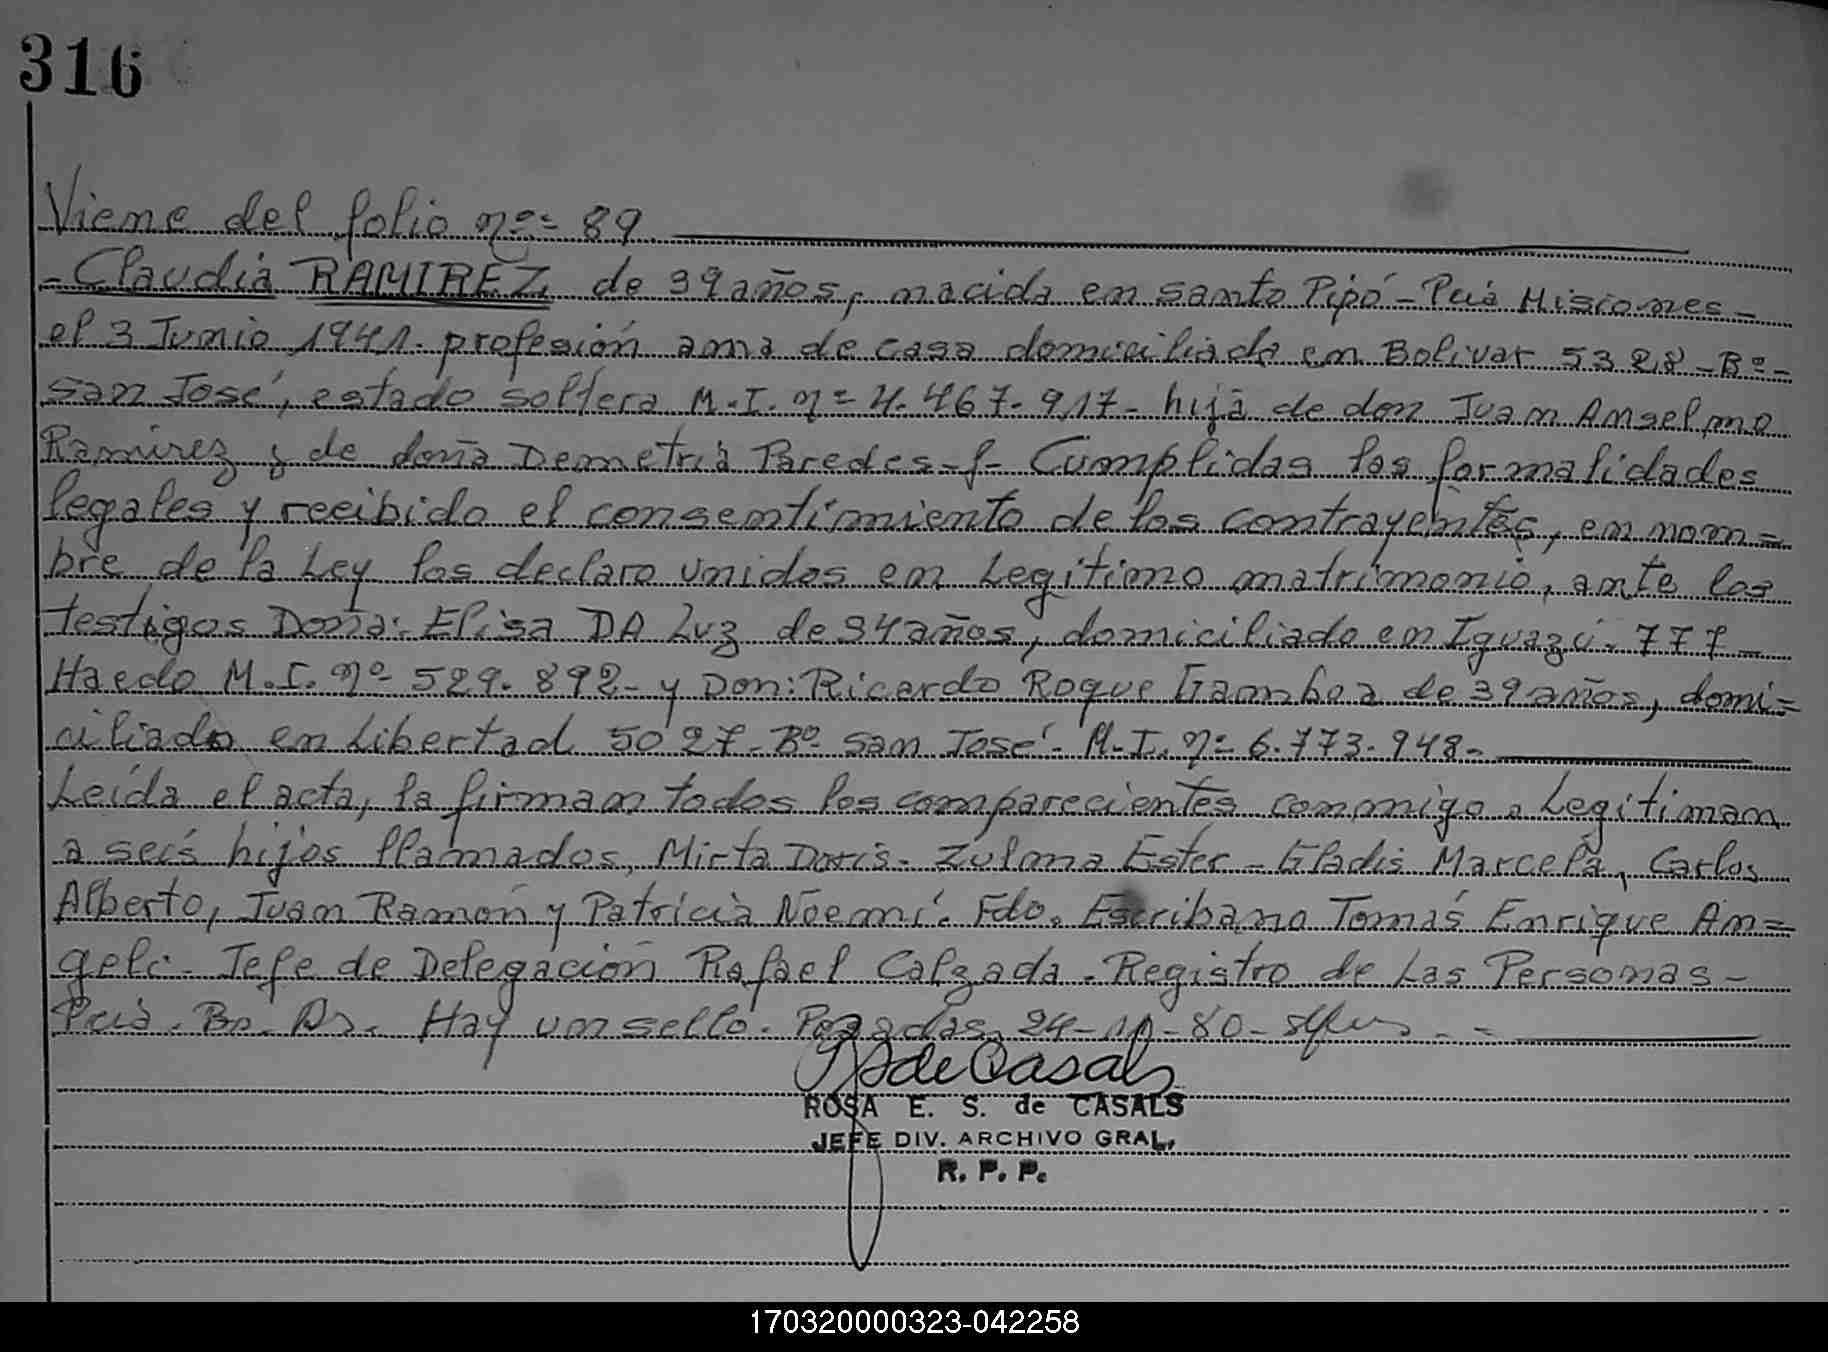 316
Viene del folio nº= 89
-Claudia RAMIREZ, de 39 años, nacida en santo Pipó - Pcia Misiones -
el 3 Junio 1941. profesión ama de casa domiciliada en Bolivar 5328 - Bº -
san José, estado soltera M.I. nº 4.467.917 - hija de don Juan Anselmo
Ramirez y de doña Demetria Paredes - f - Cumplidas las formalidades
legales y recibido el consentimiento de los contrayentes, en nom=
bre de la Ley los declaro unidos en Legítimo matrimonio, ante los
testigos Doña: Elisa DA Luz de 34 años, domiciliado en Iguazú - 777 -
Haedo M.I. nº 529.892 - y Don: Ricardo Roque Gamboa de 39 años, domi=
ciliado en Libertad 5027 - Bº San José - M.I. nº 6.773.948 -
Leída el acta, la firman todos los comparecientes conmigo. Legitiman
a seis hijos llamados, Mirta Doris - Zulma Ester - Gladis Marcela, Carlos
Alberto, Juan Ramón y Patricia Noemí. Fdo. Escribano Tomás Enrique An=
geli. Jefe de Delegación Rafael Calzada - Registro de Las Personas -
Pcia. Bs. As. Hay un sello. Posadas, 24-10-80 -
ROSA E. S. de CASALS
JEFE DIV. ARCHIVO GRAL.
R. P. P.
170320000323-042258